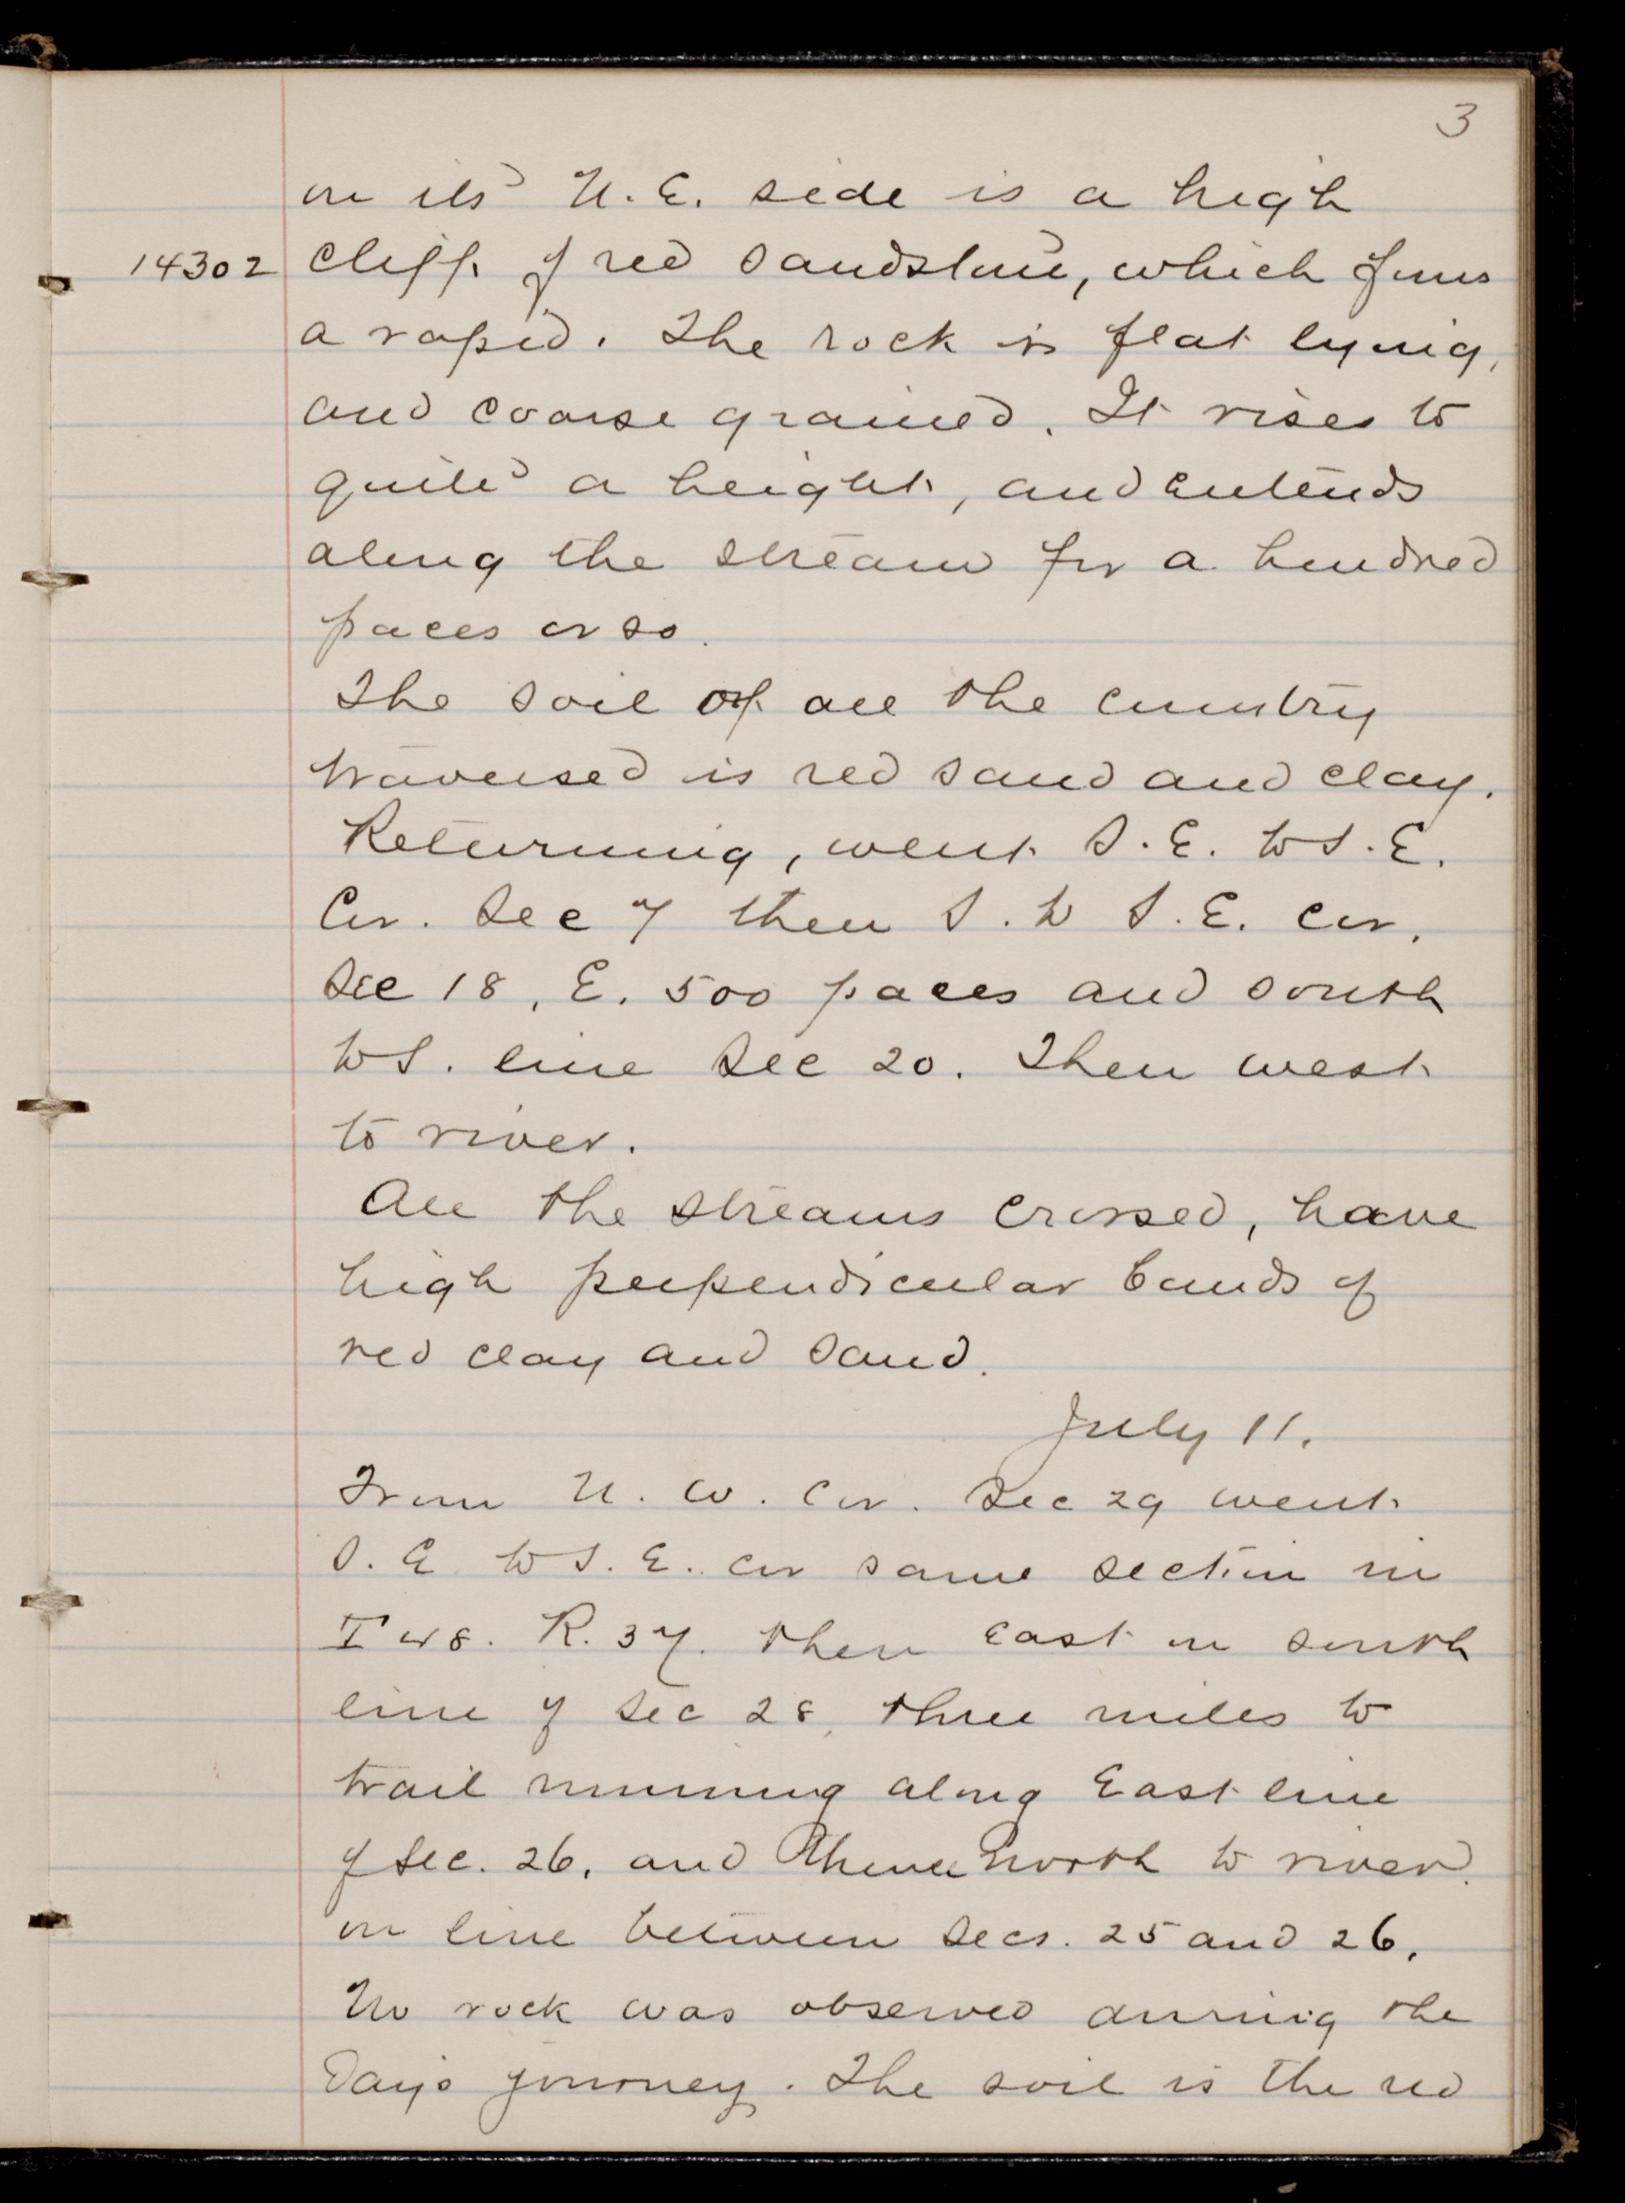 3
on its N.E. side is a high
14302 cliff of red sandstone, which forms
a rapid. The rock is flat lying,
and coarse grained. It rises to
quite a height, and extends
along the stream for a hundred
paces or so.
The soil of all the country
traversed is red sand and clay.
Returning, went S.E. to S.E.
Cor. Sec 7 then S. to S.E. cor.
Sec 18, E. 500 paces and south
to S. line Sec 20. Then west
to river.
All the streams crossed, have
high perpendicular bands of
red clay and sand.
July 11.
From N.W. Cor. Sec 29 went
S.E to S.E. cor same section in
T 48. R. 37. then East on south
line of Sec 28, three miles to
trail running along East line
of Sec. 26, and thence north to river
on line between Secs. 25 and 26.
No rock was observed during the
Day's journey. The soil is the red